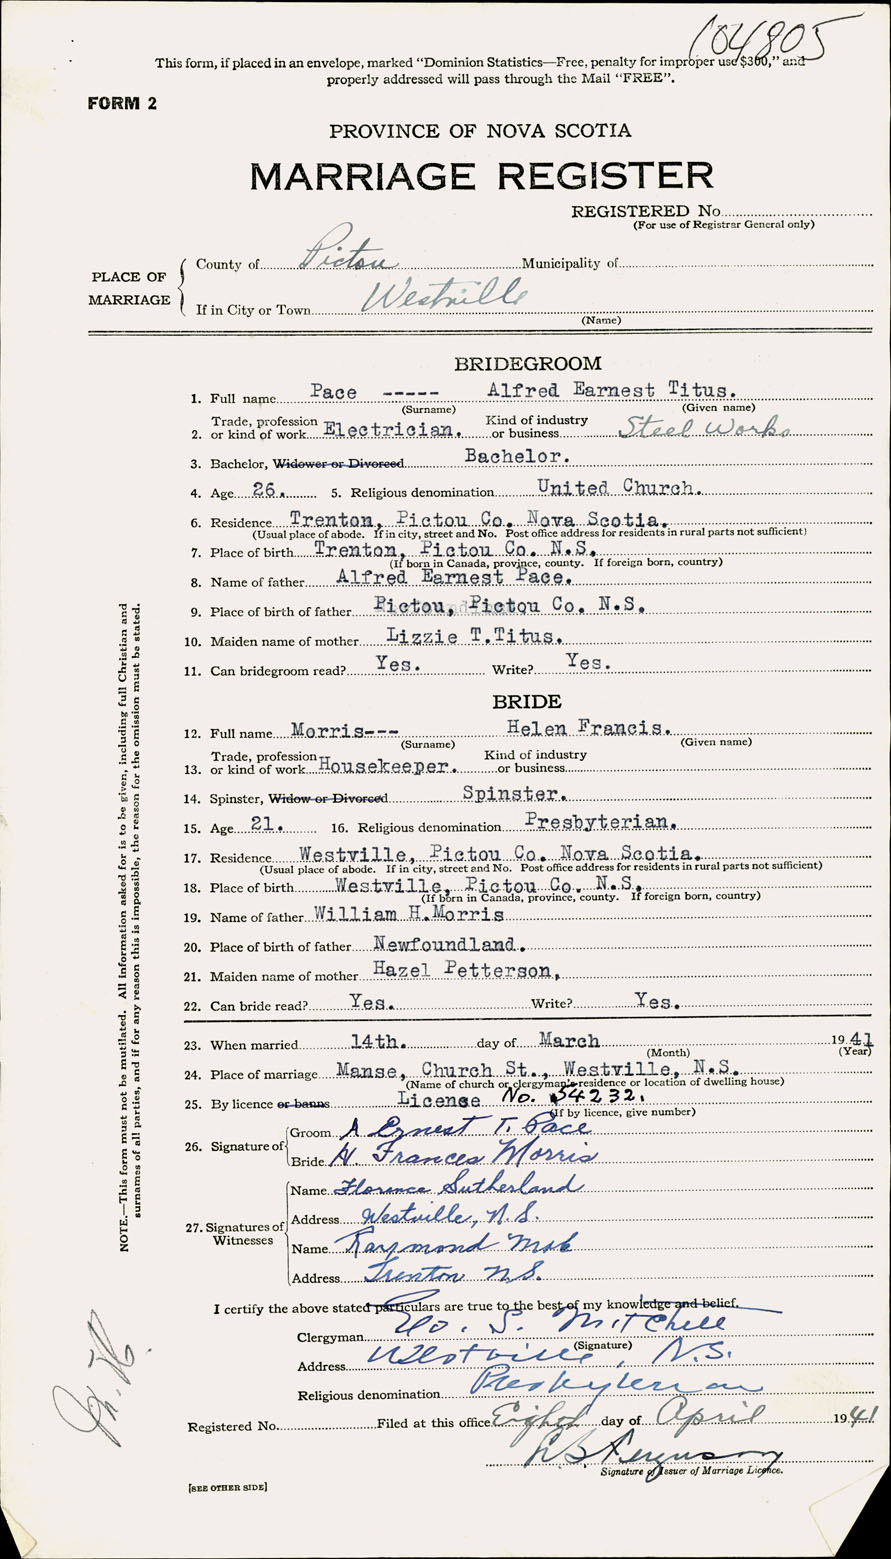 104805
This form, if placed in an envelope, marked "Dominion Statistics—Free, penalty for improper use $300," and
properly addressed will pass through the Mail "FREE".
FORM 2
PROVINCE OF NOVA SCOTIA
MARRIAGE REGISTER
REGISTERED No.
(For use of Registrar General only)
PLACE OF MARRIAGE
County of Pictou Municipality of
If in City or Town Westville
(Name)
BRIDEGROOM
1. Full name Pace ----- Alfred Earnest Titus.
(Surname) (Given name)
Trade, profession Kind of industry
2. or kind of work Electrician. or business Steel Works
3. Bachelor, Widower or Divorced Bachelor.
4. Age 26. 5. Religious denomination United Church.
6. Residence Trenton, Pictou Co. Nova Scotia.
(Usual place of abode. If in city, street and No. Post office address for residents in rural parts not sufficient)
7. Place of birth Trenton, Pictou Co. N.S.
(If born in Canada, province, county. If foreign born, country)
8. Name of father Alfred Earnest Pace.
9. Place of birth of father Pictou, Pictou Co. N.S.
10. Maiden name of mother Lizzie T.Titus.
11. Can bridegroom read? Yes. Write? Yes.
BRIDE
12. Full name Morris--- Helen Francis.
(Surname) (Given name)
Trade, profession Kind of industry
13. or kind of work Housekeeper. or business
14. Spinster, Widow or Divorced Spinster.
15. Age 21. 16. Religious denomination Presbyterian.
17. Residence Westville, Pictou Co. Nova Scotia.
(Usual place of abode. If in city, street and No. Post office address for residents in rural parts not sufficient)
18. Place of birth Westville, Pictou Co. N.S.
(If born in Canada, province, county. If foreign born, country)
19. Name of father William H.Morris
20. Place of birth of father Newfoundland.
21. Maiden name of mother Hazel Petterson,
22. Can bride read? Yes. Write? Yes.
23. When married 14th. day of March 1941
(Month) (Year)
24. Place of marriage Manse, Church St., Westville, N.S.
(Name of church or clergyman's residence or location of dwelling house)
25. By licence or banns License No. 54232.
(If by licence, give number)
26. Signature of
Groom A Ernest T. Pace
Bride H. Frances Morris
27. Signatures of Witnesses
Name Florence Sutherland
Address Westville, N.S.
Name Raymond
Address Trenton N.S.
I certify the above stated particulars are true to the best of my knowledge and belief.
Clergyman Geo. S. Mitchell
(Signature)
Address Westville, N.S.
Religious denomination Presbyterian
Registered No. Filed at this office Eighth day of April 1941
Ferguson
Signature of Issuer of Marriage Licence.
[SEE OTHER SIDE]
NOTE.—This form must not be mutilated. All information asked for is to be given, including full Christian and
surnames of all parties, and if for any reason this is impossible, the reason for the omission must be stated.